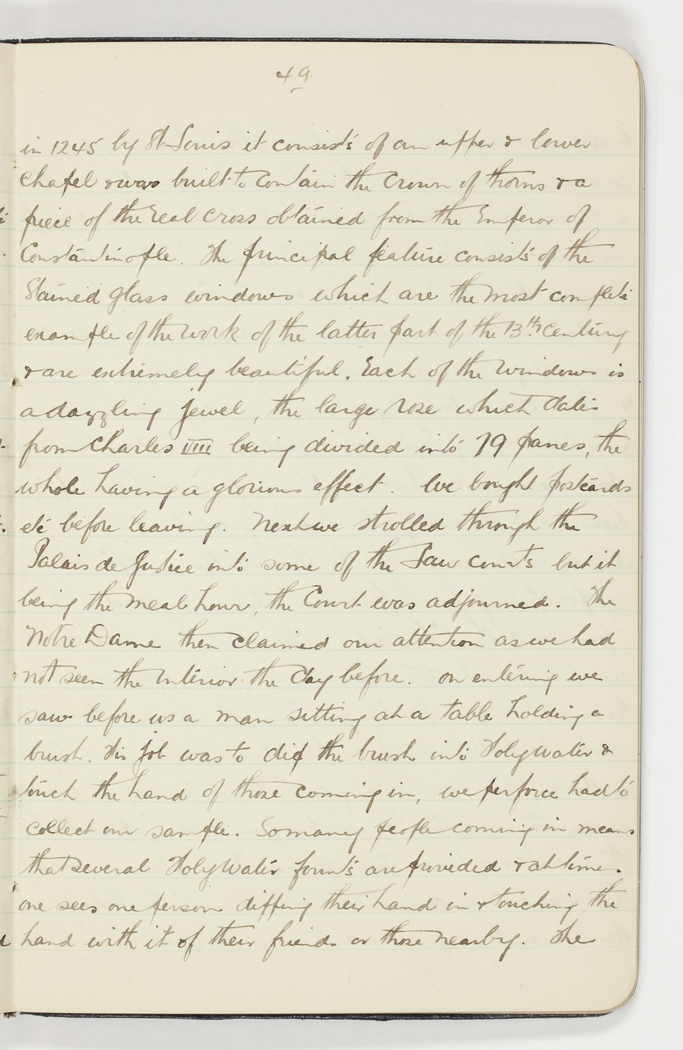 49
in 1245 by St Louis it consists of an upper & lower
chapel & was built to contain the Crown of thorns & a
piece of the real cross obtained from the Emperor of
Constantinople. The principal feature consists of the
Stained glass windows which are the most complete
example of the work of the latter part of the 13th century
& are extremely beautiful. Each of the windows is
a dazzling jewel, the large rose which dates
from Charles VIII being divided into 79 panes, the
whole having a glorious effect. We bought postcards
etc before leaving. Next we strolled through the
Palais de Justice into some of the Law courts but it
being the meal hour, the Court was adjourned. The
Notre Dame then claimed our attention as we had
not seen the interior the day before. On entering we
saw before us a man sitting at a table holding a
brush. His job was to dip the brush into Holy Water &
touch the hand of those coming in, we perforce had to
collect our sample. So many people coming in means
that several Holy Water founts are provided & at times
one sees one person dipping their hand in & touching the
hand with it of their friends or those nearby. The